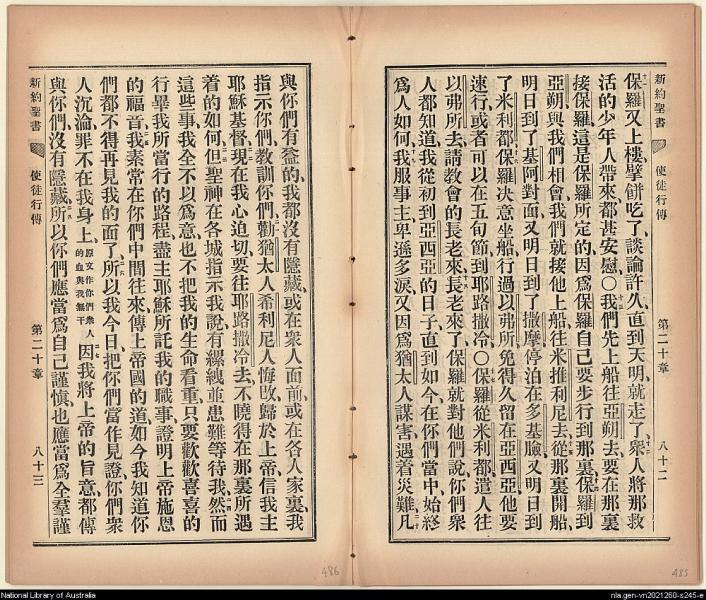 新約聖書 使徒行傳 第二十章 八十二
保羅又上樓、擘餅吃了、談論許久、直到天明、就走了、衆人將那救
活的少年人帶來、都甚安慰、○我們先上船往亞朔去、要在那裏
接保羅、這是保羅所定的、因爲保羅自己要步行到那裏、保羅到
亞朔與我們相會、我們就接他上船、往米推利尼去、從那裏開船、
明日到了基阿對面、又明日到了撒摩、停泊在多基臉、又明日到
了米利都、保羅决意坐船行過以弗所、免得久留在亞西亞、他要
速行、或者可以在五旬節到耶路撒冷、○保羅從米利都、遣人往
以弗所去、請教會的長老來、長老來了、保羅就對他們說、你們衆
人都知道、我從初到亞西亞的日子、直到如今、在你們當中、始終
爲人如何、我服事主、卑遜多淚、又因爲猶太人謀害、遇着災難、凡
與你們有益的、我都沒有隱藏、或在衆人面前、或在各人家裏、我
指示你們、教訓你們、勸猶太人希利尼人、悔改歸於上帝、信我主
耶穌基督、現在我心迫切、要往耶路撒冷去、不曉得在那裏所遇
着的如何、但聖神在各城指示我、說有縲絏並患難等待我、然而
這些事我全不以爲意、也不把我的生命看重、只要歡歡喜喜的
行畢我所當行的路程、盡主耶穌所託我的職事、證明上帝施恩
的福音、我素常在你們中間往來、傳上帝國的道、如今我知道你
們都不得再見我的面了、所以我今日、把你們當作見證、你們衆
人沉淪、罪不在我身上、原文作你們衆人的血與我無干因我將上帝的旨意、都傳
與你們、沒有隱藏、所以你們應當爲自己謹愼、也應當爲全羣謹
新約聖書 使徒行傳 第二十章 八十三
486
485
National Library of Australia
nla.gen-vn2021260-s245-e